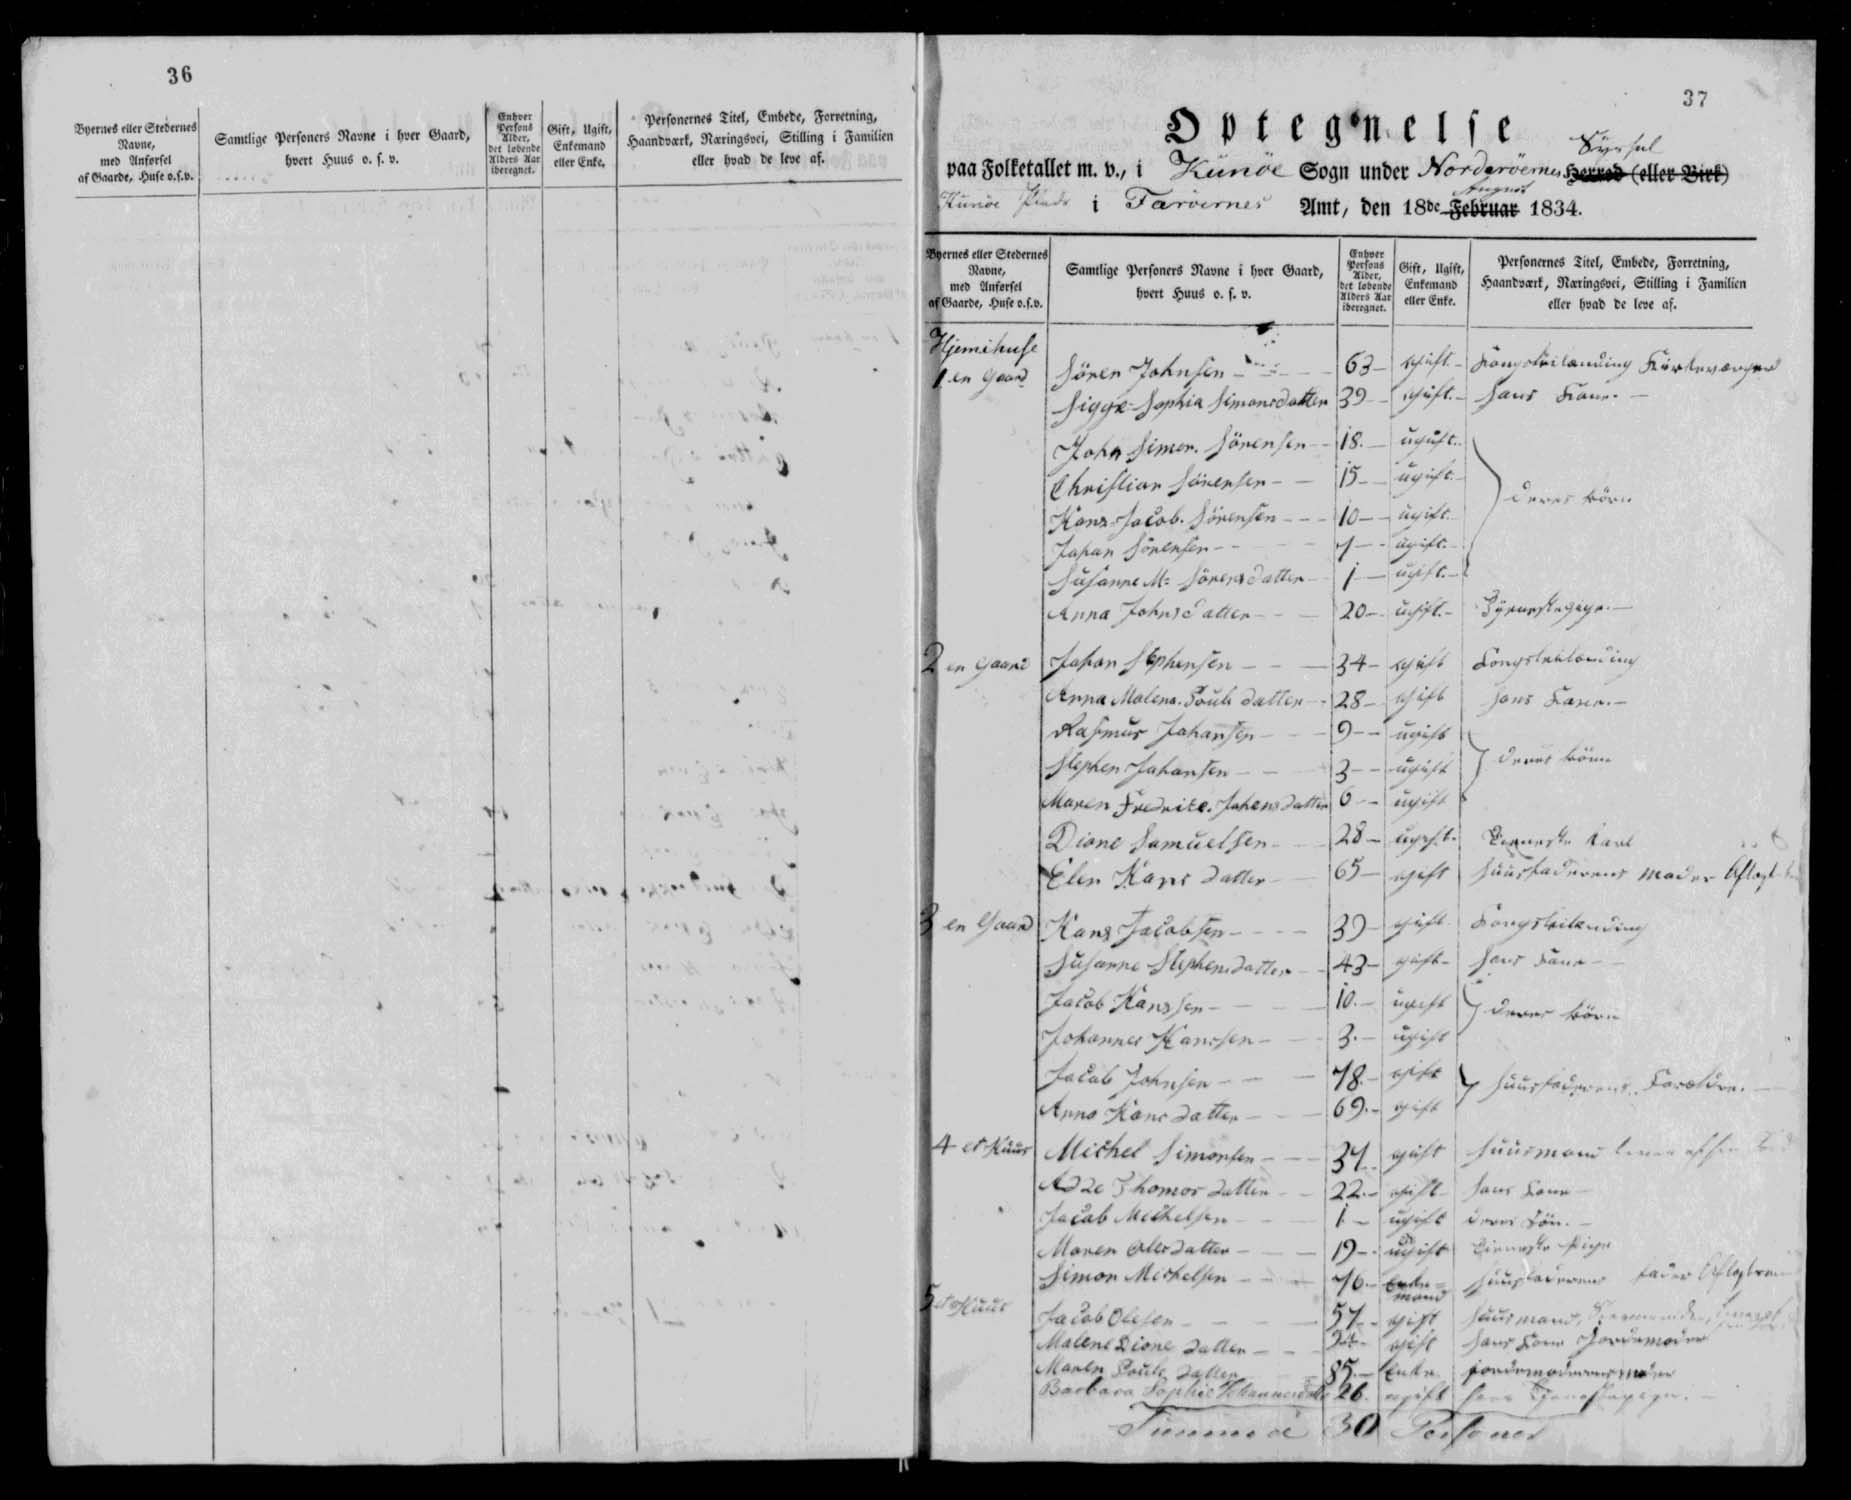 36
Byernes eller Stedernes
Navne,
med Anførsel
af Gaarde, Huse o.s.v.
Samtlige Personers Navne i hver Gaard,
hvert Huus o. s. v.
Enhver
Persons
Alder,
det løbende
Alders Aar
iberegnet.
Gift, Ugift,
Enkemand
eller Enke.
Personernes Titel, Embede, Forretning,
Haandværk, Næringsvei, Stilling i Familien
eller hvad de leve af.
37
Optegnelse
Syssel
paa Folketallet m. v., i Kunöe Sogn under Norderöernes Herred (eller Birk)
August
Kunöe Præstg i Færöernes Amt, den 18de Februar 1834.
Byernes eller Stedernes
Navne,
med Anførsel
af Gaarde, Huse o.s.v.
Samtlige Personers Navne i hver Gaard,
hvert Huus o. s. v.
Enhver
Persons
Alder,
det løbende
Alders Aar
iberegnet.
Gift, Ugift,
Enkemand
eller Enke.
Personernes Titel, Embede, Forretning,
Haandværk, Næringsvei, Stilling i Familien
eller hvad de leve af.
Hjemihuse
1 en Gaard Sören Johnsen 63 gift Kongsleilænding Kirkeværger
Sigge Sophia Simonsdatter 39 gift hans Kone
John Simon Sörensen 18 ugift
Christian Sörensen 15 ugift deres börn
Hans Jacob Sörensen 10 ugift
Johan Sörensen 7 ugift
Susanne M: Sörensdatter 1 ugift
Anna Johnsdatter 20 ugift Tjenestepige
2 en Gaard Johan Stephensen 34 gift Kongsleilænding
Anna Malena Pouls datter 28 gift hans Kone
Rasmus Johansen 9 ugift
Stephen Johansen 3 ugift deres börn
Maren Fredrike Johansdatter 6 ugift
Dione Samuelsen 28 ugift Tieneste Karl
Elen Hans datter 65 gift huusfaderens moder
3 en Gaard Hans Jacobsen 39 gift Kongsleilænding
Susanne Stephensdatter 43 gift hans Kone
Jacob Hanssen 10 ugift deres börn
Johannes Hanssen 3 ugift
Jacob Johnsen 78 gift huusfaderens Forældre
Anna Hans datter 69 gift
4 et Huus Michel Simonsen 37 gift huusmand lever af
Adze Thomas datter 22 gift hans Kone
Jacob Michelsen 1 ugift deres Sön
Maren Olesdatter 19 ugift Tieneste Pige
Simon Michelsen 76 Enke=
mand huusfaderens fader
5 et Huus Jacob Olesen 57 gift huusmand,
Malene Dione datter gift hans Kone Jordemoder
Maren Pouls datter 85 Enke Jordemoderens moder
Barbara Sophie 26 ugift
Summa 30 Personer